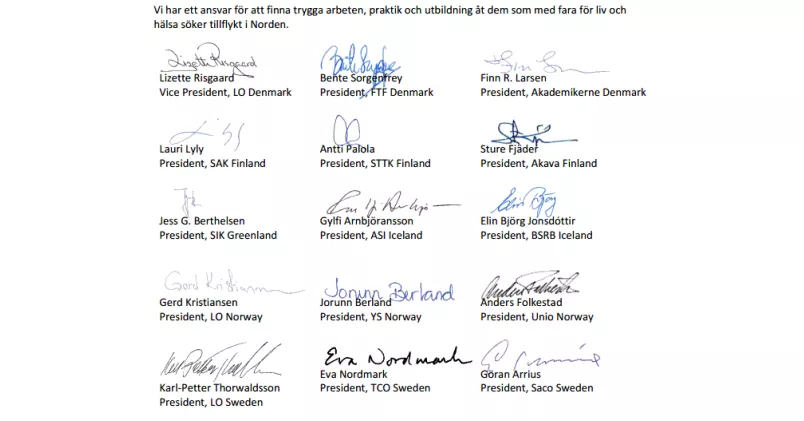 Vi har ett ansvar för att finna trygga arbeten, praktik och utbildning åt dem som med fara för liv och
hälsa söker tillflykt i Norden.
Lizette Risgaard
Lizette Risgaard
Vice President, LO Denmark
Bente Sorgenfrey
President, FTF Denmark
Finn R. Larsen
President, Akademikerne Denmark
Lauri Lyly
President, SAK Finland
Antti Palola
President, STTK Finland
Sture Fjäder
President, Akava Finland
Jess G. Berthelsen
President, SIK Greenland
Gylfi Arnbjöransson
President, ASI Iceland
Elin Björg
Elin Björg Jonsdóttir
President, BSRB Iceland
Gerd Kristiansen
Gerd Kristiansen
President, LO Norway
Jorunn Berland
Jorunn Berland
President, YS Norway
Anders Folkestad
President, Unio Norway
Karl-Petter Thorwaldsson
President, LO Sweden
Eva Nordmark
Eva Nordmark
President, TCO Sweden
Göran Arrius
President, Saco Sweden